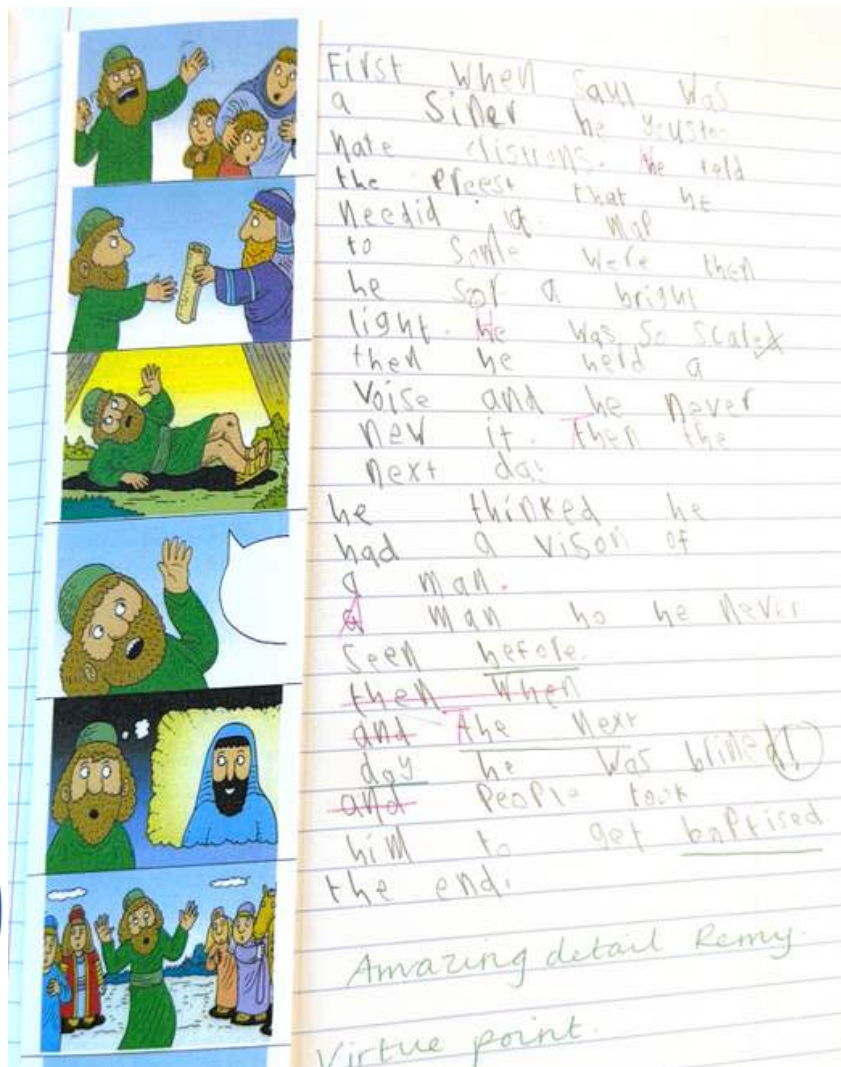 First when Saul was
a Siner he yousto
hate cristions. He told
the Preest that he
needid a map
to some were then
he sor a bright
light. He was so scared
then he herd a
voise and he never
new it. Then the
next day
he thinked he
had a vison of
a man.
A man ho he never
seen before.
then when
and The next
day he was blined!
and People took
him to get baptised
the end.
Amazing detail Remy.
Virtue point.